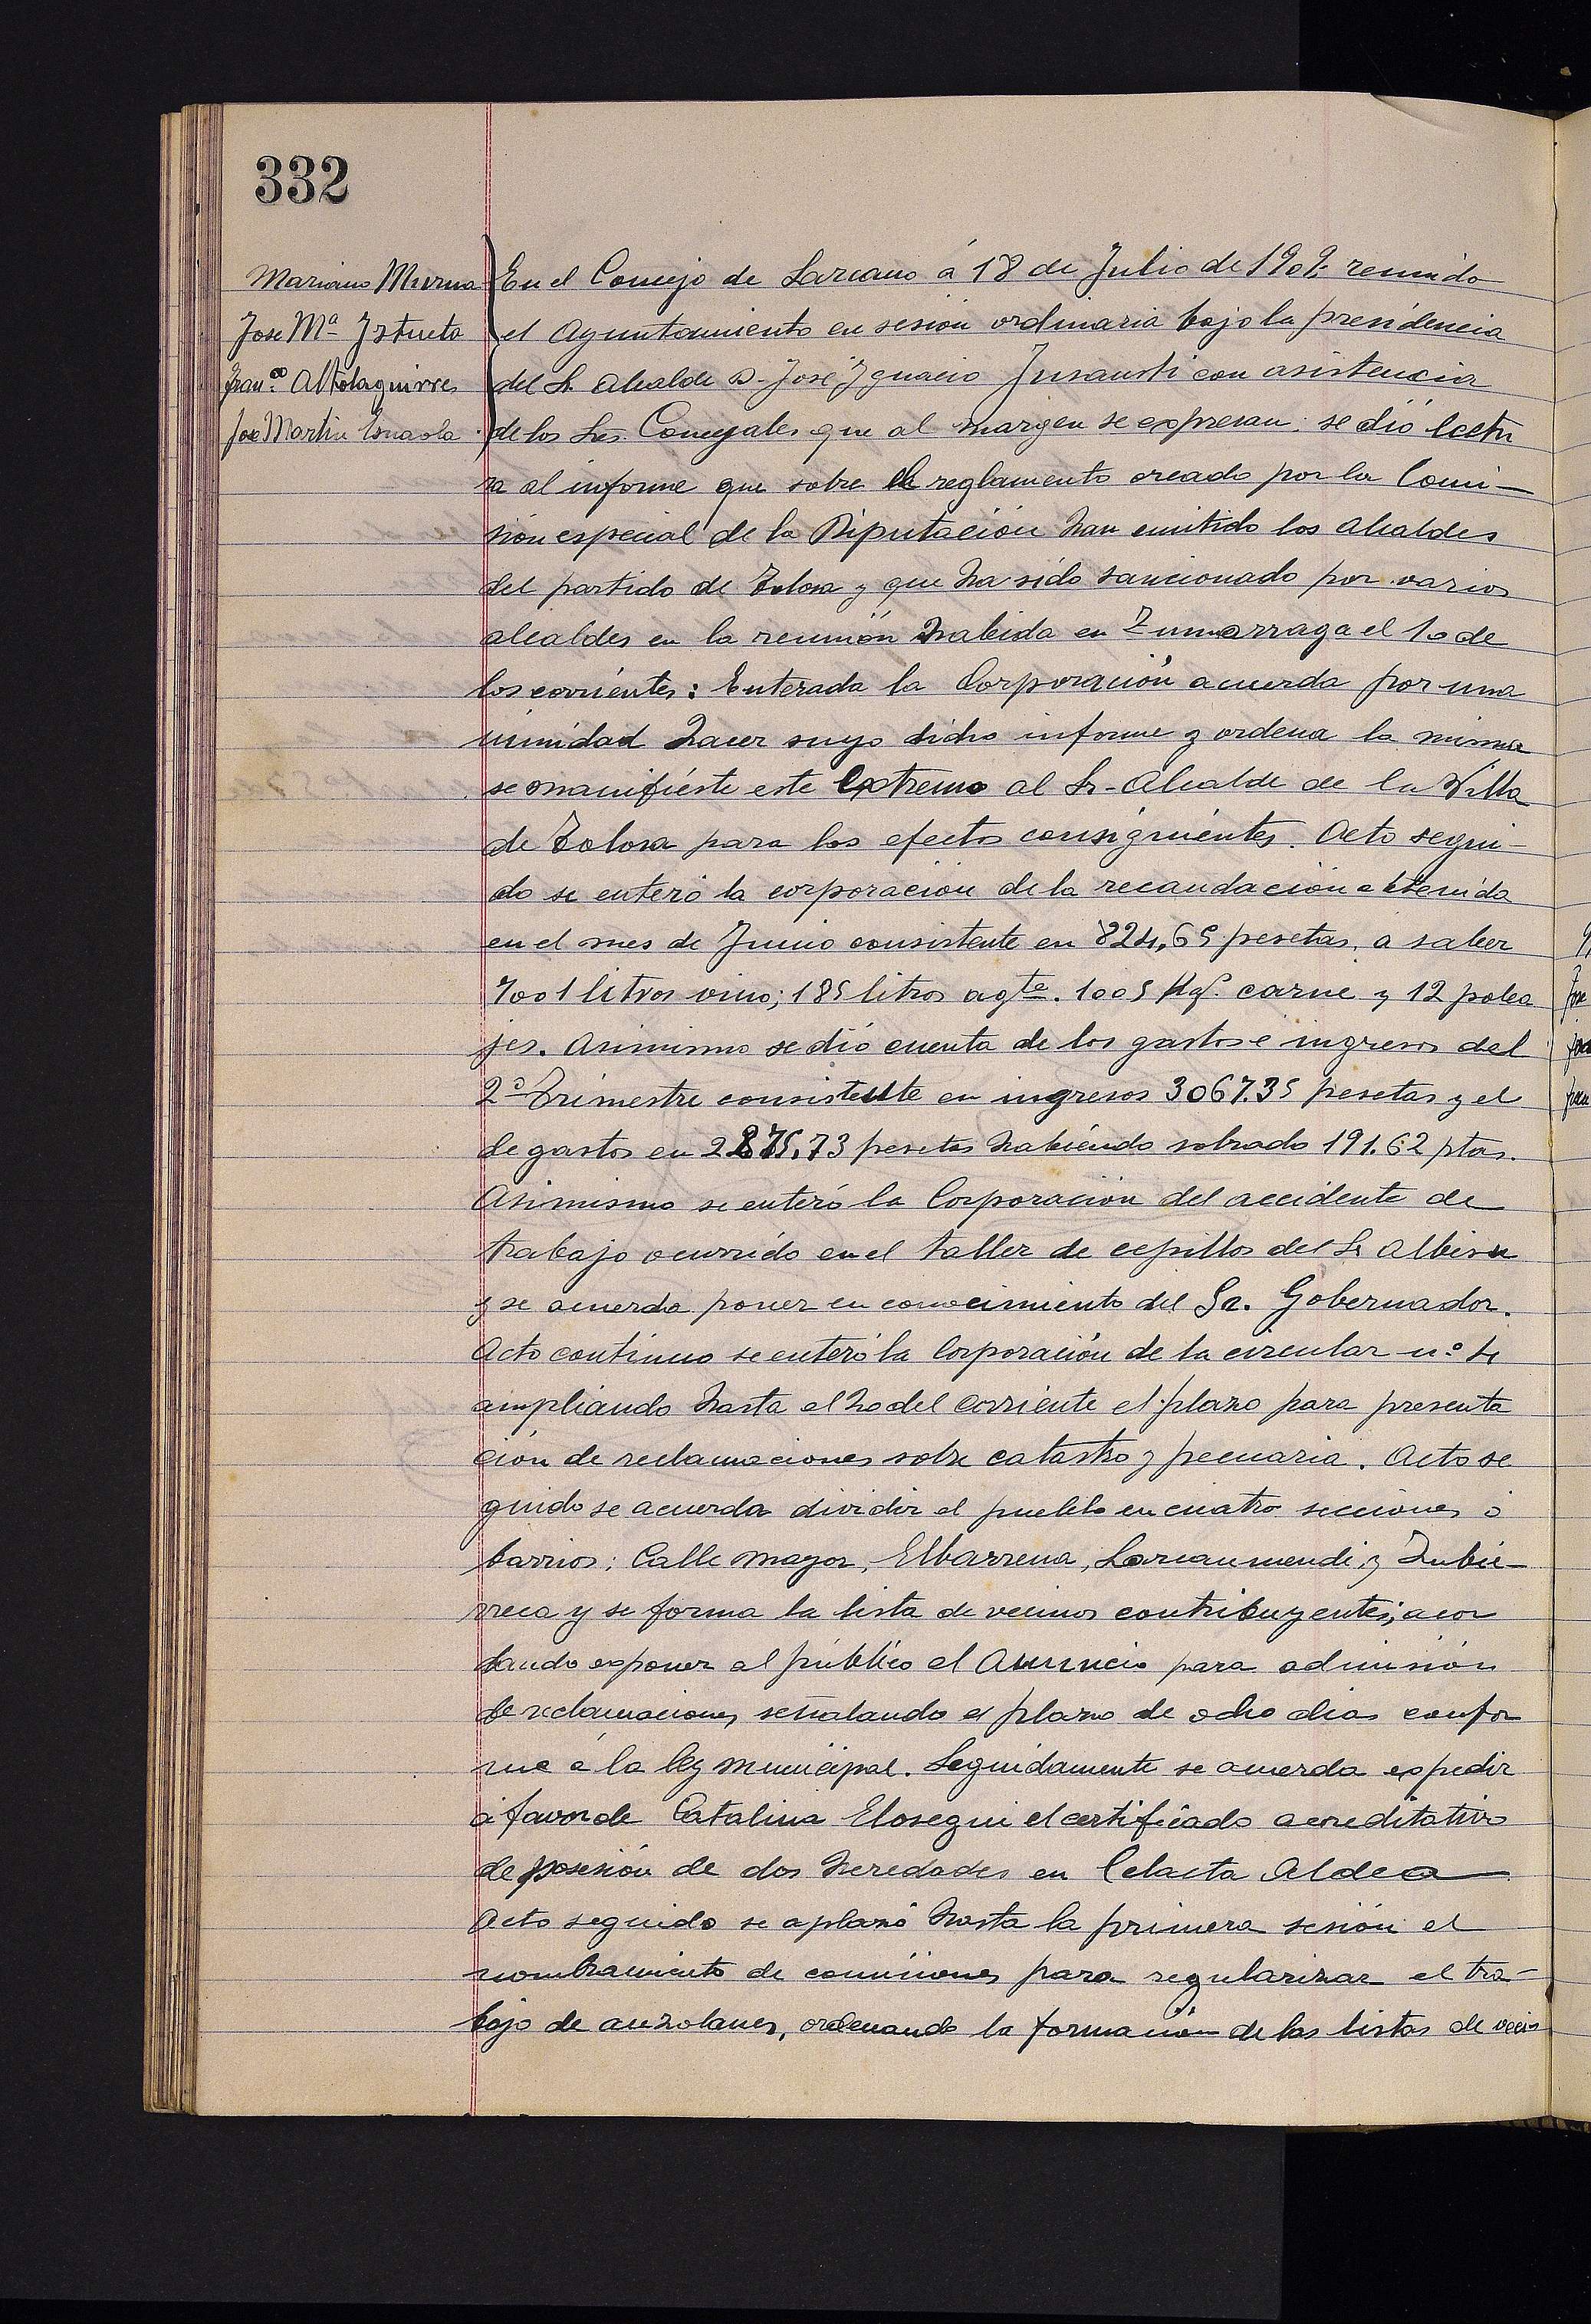 332
Mariano Murua
Jose Mª Iztueta
Franco Altolaguirre
Jose Martin Esnaola
En el Concejo de Lazcano á 18 de Julio de 1909 reunido
el Ayuntamiento en sesión ordinaria bajo la presidencia
del Sr. Alcalde D. José Ygnacio Insausti con asistencia
de los Sres. Concejales que al margen se expresan: se dió lectu
ra al informe que sobre el reglamento creado por la Comi-
sión especial de la Diputación han emitido los Alcaldes
del partido de Tolosa y que ha sido sancionado por varios
alcaldes en la reunión habida en Zumarraga el 10 de
los corrientes: Enterada la Corporación acuerda por una
nimidad hacer suyo dicho informe y ordena la misma
se manifieste este extremo al Sr. Alcalde de la Villa
de Tolosa para los efectos consiguientes. Acto segui-
do se enteró la corporación de la recaudación obtenida
en el mes de Junio consistente en 824,65 pesetas, a saber
7001 litros vino; 185 litros agte. 1005 Kgs. carne y 12 polea
jes. Asimismo se dió cuenta de los gastos é ingresos del
2º Trimestre consistente en ingresos 3067.35 pesetas y el
de gastos en 2875,73 pesetas habiendo sobrado 191.62 ptas.
Asimismo se enteró la Corporación del accidente de
trabajo ocurrido en el taller de cepillos del Sr Albisu
y se acuerda poner en conocimiento del Sr. Gobernador.
Acto contínuo se enteró la Corporación de la circular nº 4
ampliando hasta el 20 del corriente el plazo para presenta
ción de reclamaciones sobre catastro y pecuaria. Acto se
guido se acuerda dividir el pueblo en cuatro secciones ó
barrios: Calle mayor, Elbarrena, Lazcaumendi, y Zubie-
rreca y se forma la lista de vecinos contribuyentes, acor
dando exponer al público el Anuncio para admisión
de reclamaciones señalando el plazo de ocho dias confor
me á la ley municipal. Seguidamente se acuerda expedir
á favor de Catalina Elosegui el certificado acreditativo
de posesión de dos heredades en Celaeta Aldea
Acto seguido se aplazó hasta la primera sesión el
nombramiento de comisiones para regularizar el tra-
bajo de auzolanes, ordenando la formación de las listas de vecin